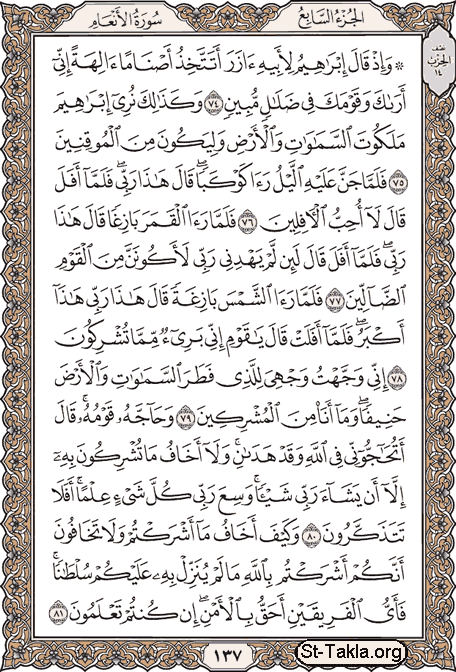 سُورَةُ الأَنْعَامِ
الجُزْءُ السَّابِعُ
نصف الحزب ١٤
۞ وَإِذۡ قَالَ إِبۡرَٰهِيمُ لِأَبِيهِ ءَازَرَ أَتَتَّخِذُ أَصۡنَامًا ءَالِهَةً إِنِّيٓ
أَرَىٰكَ وَقَوۡمَكَ فِي ضَلَٰلٖ مُّبِينٖ ٧٤ وَكَذَٰلِكَ نُرِيٓ إِبۡرَٰهِيمَ
مَلَكُوتَ ٱلسَّمَٰوَٰتِ وَٱلۡأَرۡضِ وَلِيَكُونَ مِنَ ٱلۡمُوقِنِينَ
٧٥ فَلَمَّا جَنَّ عَلَيۡهِ ٱلَّيۡلُ رَءَا كَوۡكَبٗاۖ قَالَ هَٰذَا رَبِّيۖ فَلَمَّآ أَفَلَ
قَالَ لَآ أُحِبُّ ٱلۡأٓفِلِينَ ٧٦ فَلَمَّا رَءَا ٱلۡقَمَرَ بَازِغٗا قَالَ هَٰذَا
رَبِّيۖ فَلَمَّآ أَفَلَ قَالَ لَئِن لَّمۡ يَهۡدِنِي رَبِّي لَأَكُونَنَّ مِنَ ٱلۡقَوۡمِ
ٱلضَّآلِّينَ ٧٧ فَلَمَّا رَءَا ٱلشَّمۡسَ بَازِغَةٗ قَالَ هَٰذَا رَبِّي هَٰذَآ
أَكۡبَرُۖ فَلَمَّآ أَفَلَتۡ قَالَ يَٰقَوۡمِ إِنِّي بَرِيٓءٞ مِّمَّا تُشۡرِكُونَ
٧٨ إِنِّي وَجَّهۡتُ وَجۡهِيَ لِلَّذِي فَطَرَ ٱلسَّمَٰوَٰتِ وَٱلۡأَرۡضَ
حَنِيفٗاۖ وَمَآ أَنَا۠ مِنَ ٱلۡمُشۡرِكِينَ ٧٩ وَحَآجَّهُۥ قَوۡمُهُۥۚ قَالَ
أَتُحَٰٓجُّوٓنِّي فِي ٱللَّهِ وَقَدۡ هَدَىٰنِۚ وَلَآ أَخَافُ مَا تُشۡرِكُونَ بِهِۦٓ
إِلَّآ أَن يَشَآءَ رَبِّي شَيۡـٔٗاۚ وَسِعَ رَبِّي كُلَّ شَيۡءٍ عِلۡمًاۚ أَفَلَا
تَتَذَكَّرُونَ ٨٠ وَكَيۡفَ أَخَافُ مَآ أَشۡرَكۡتُمۡ وَلَا تَخَافُونَ
أَنَّكُمۡ أَشۡرَكۡتُم بِٱللَّهِ مَا لَمۡ يُنَزِّلۡ بِهِۦ عَلَيۡكُمۡ سُلۡطَٰنٗاۚ
فَأَيُّ ٱلۡفَرِيقَيۡنِ أَحَقُّ بِٱلۡأَمۡنِۖ إِن كُنتُمۡ تَعۡلَمُونَ ٨١
١٣٧
St-Takla.org